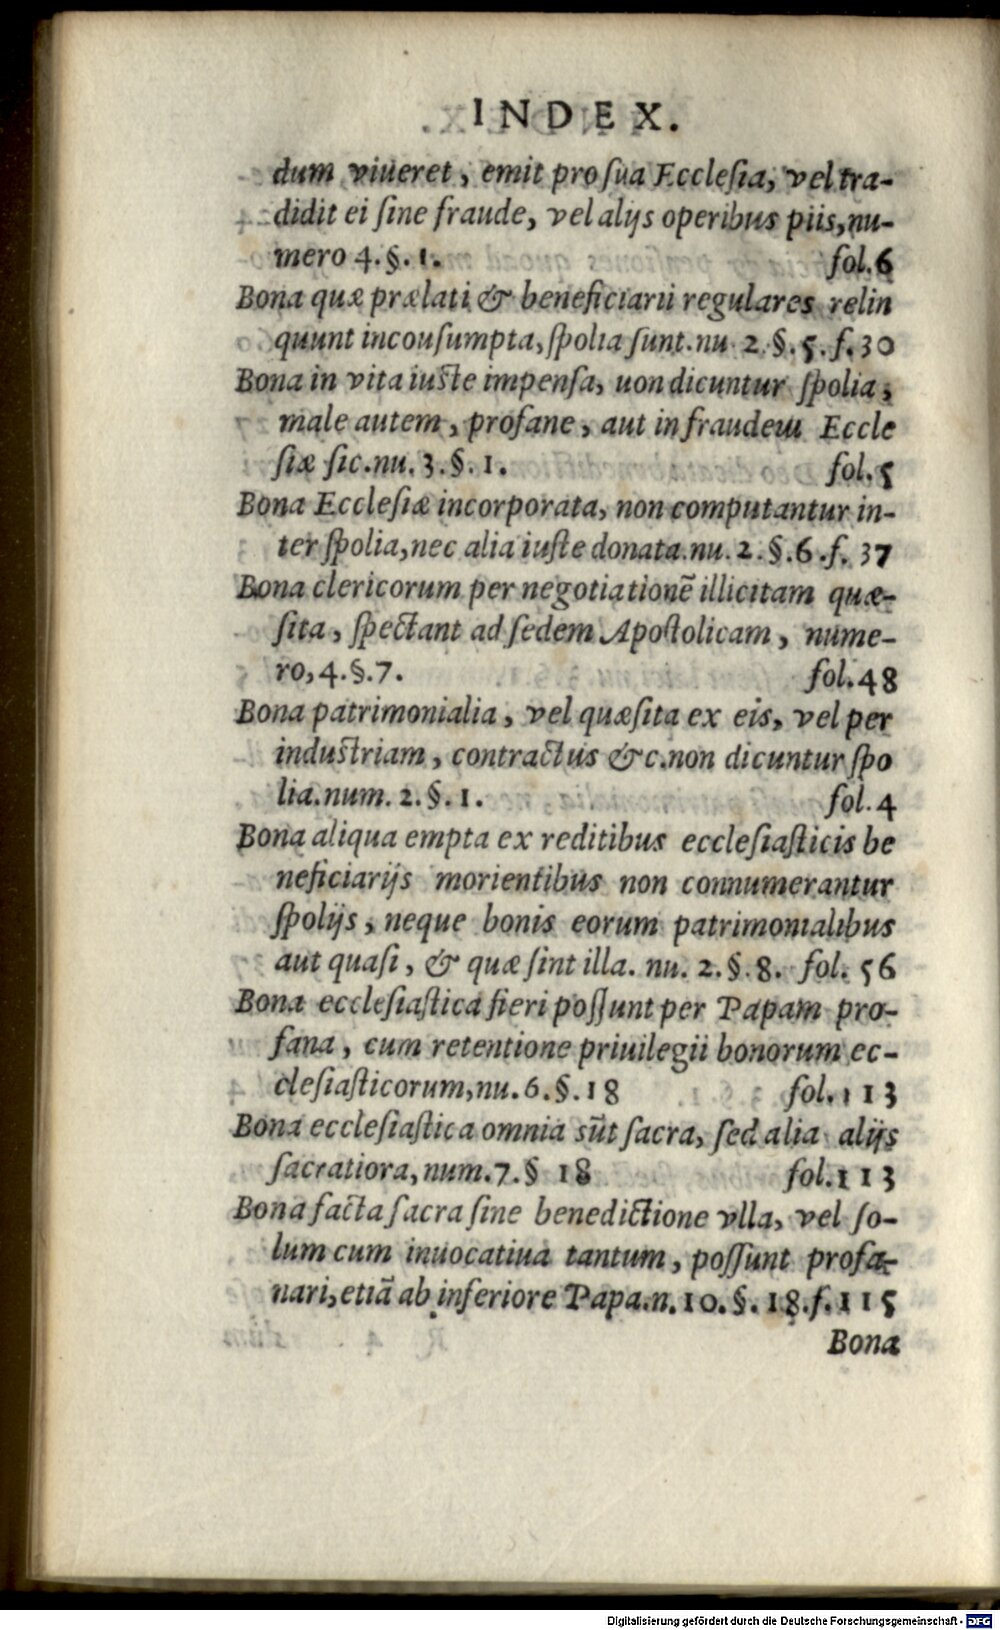 INDEX.
dum viueret, emit pro sua Ecclesia, vel tra-
didit ei sine fraude, vel alijs operibus piis, nu-
mero 4. §. 1. fol. 6
Bona quæ prælati & beneficiarii regulares relin
quunt incousumpta, spolia sunt. nu. 2. §. 5. f. 30
Bona in vita iuste impensa, uon dicuntur spolia;
male autem, profane, aut in fraudem Eccle
siæ sic. nu. 3. §. 1. fol. 5
Bona Ecclesiæ incorporata, non computantur in-
ter spolia, nec alia iuste donata. nu. 2. §. 6. f. 37
Bona clericorum per negotiationẽ illicitam quæ-
sita, spectant ad sedem Apostolicam, nume-
ro, 4. §. 7. fol. 48
Bona patrimonialia, vel quæsita ex eis, vel per
industriam, contractus &c. non dicuntur spo
lia. num. 2. §. 1. fol. 4
Bona aliqua empta ex reditibus ecclesiasticis be
neficiarijs morientibus non connumerantur
spolijs, neque bonis eorum patrimonialibus
aut quasi, & quæ sint illa. nu. 2. §. 8. fol. 56
Bona ecclesiastica fieri possunt per Papam pro-
fana, cum retentione priuilegii bonorum ec-
clesiasticorum, nu. 6. §. 18 fol. 113
Bona ecclesiastica omnia sũt sacra, sed alia alijs
sacratiora, num. 7. § 18 fol. 113
Bona facta sacra sine benedictione vlla, vel so-
lum cum inuocatiua tantum, possunt profa-
nari, etiã ab inferiore Papa. n. 10. §. 18. f. 115
Bona
Digitalisierung gefördert durch die Deutsche Forschungsgemeinschaft - DFG